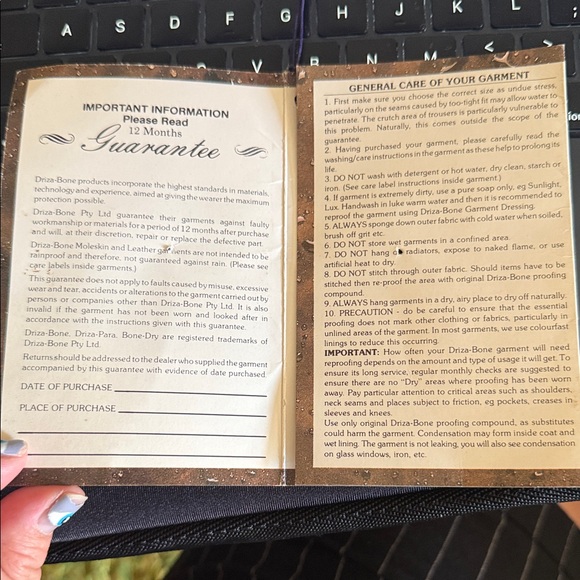 A
S
D
F
G
H
J
K
L
B
N
M
<
>
IMPORTANT INFORMATION
Please Read
12 Months
Guarantee
Driza-Bone products incorporate the highest standards in materials,
technology and experience, aimed at giving the wearer the maximum
protection possible.
Driza-Bone Pty Ltd guarantee their garments against faulty
workmanship or materials for a period of 12 months after purchase
and will, at their discretion, repair or replace the defective part.
Driza-Bone Moleskin and Leather garments are not intended to be
rainproof and therefore, not guaranteed against rain. (Please see
care labels inside garments.)
This guarantee does not apply to faults caused by misuse, excessive
wear and tear, accidents or alterations to the garment carried out by
persons or companies other than Driza-Bone Pty Ltd. It is also
invalid if the garment has not been worn and looked after in
accordance with the instructions given with this guarantee.
Driza-Bone, Driza-Para, Bone-Dry are registered trademarks of
Driza-Bone Pty Ltd.
Returns should be addressed to the dealer who supplied the garment
accompanied by this guarantee with evidence of date purchased.
DATE OF PURCHASE
PLACE OF PURCHASE
GENERAL CARE OF YOUR GARMENT
1. First make sure you choose the correct size as undue stress,
particularly on the seams caused by too-tight fit may allow water to
penetrate. The crutch area of trousers is particularly vulnerable to
this problem. Naturally, this comes outside the scope of the
guarantee.
2. Having purchased your garment, please carefully read the
washing/care instructions in the garment as these help to prolong its
life.
3. DO NOT wash with detergent or hot water, dry clean, starch or
iron. (See care label instructions inside garment.)
4. If garment is extremely dirty, use a pure soap only, eg Sunlight,
Lux. Handwash in luke warm water and then it is recommended to
reproof the garment using Driza-Bone Garment Dressing.
5. ALWAYS sponge down outer fabric with cold water when soiled,
brush off grit etc.
6. DO NOT store wet garments in a confined area.
7. DO NOT hang on radiators, expose to naked flame, or use
artificial heat to dry.
8. DO NOT stitch through outer fabric. Should items have to be
stitched then re-proof the area with original Driza-Bone proofing
compound.
9. ALWAYS hang garments in a dry, airy place to dry off naturally.
10. PRECAUTION - do be careful to ensure that the essential
proofing does not mark other clothing or fabrics, particularly in
unlined areas of the garment. In most garments, we use colourfast
linings to reduce this occurring.
IMPORTANT: How often your Driza-Bone garment will need
reproofing depends on the amount and type of usage it will get. To
ensure its long service, regular monthly checks are suggested to
ensure there are no "Dry" areas where proofing has been worn
away. Pay particular attention to critical areas such as shoulders,
neck seams and places subject to friction, eg pockets, creases in
sleeves and knees.
Use only original Driza-Bone proofing compound, as substitutes
could harm the garment. Condensation may form inside coat and
wet lining. The garment is not leaking, you will also see condensation
on glass windows, iron, etc.